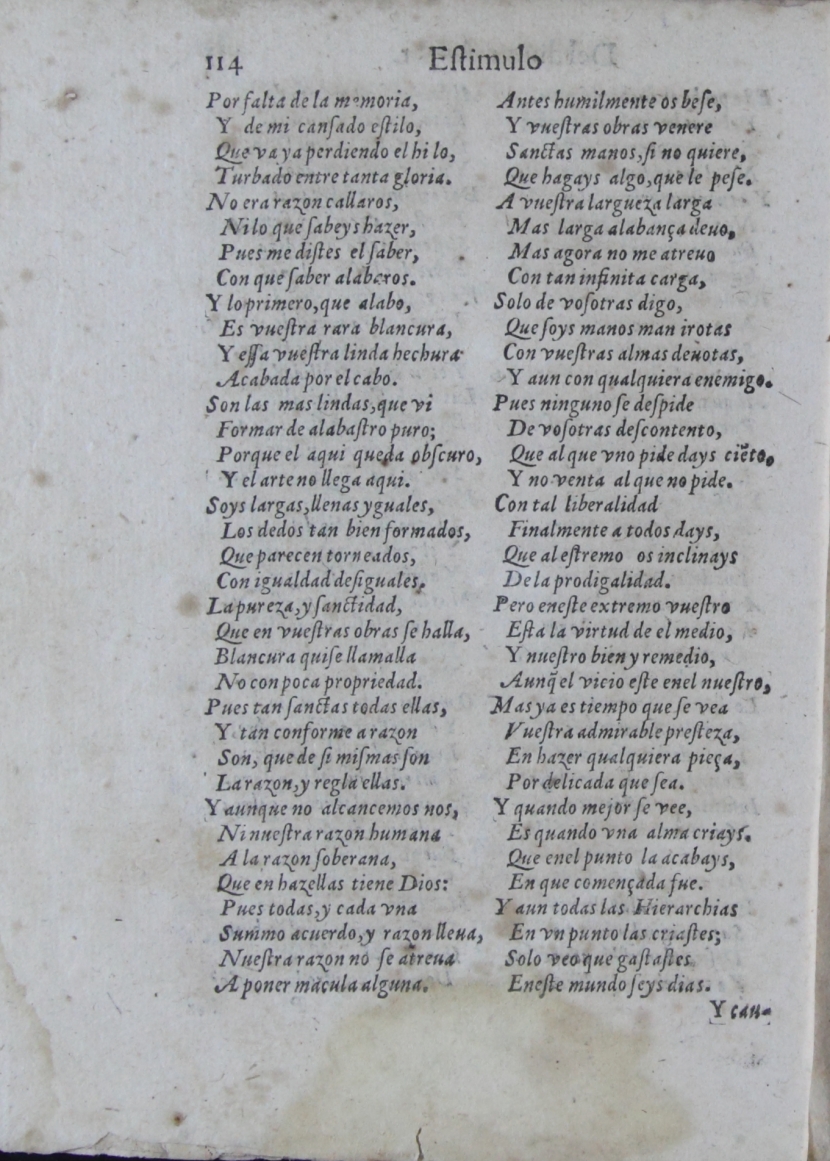 114 Estimulo
Por falta de la memoria,
Y de mi cansado estilo,
Que va ya perdiendo el hilo,
Turbado entre tanta gloria.
No era razon callaros,
Ni lo que sabeys hazer,
Pues me distes el saber,
Con que saber alabaros.
Y lo primero, que alabo,
Es vuestra rara blancura,
Y essa vuestra linda hechura
Acabada por el cabo.
Son las mas lindas, que vi
Formar de alabastro puro;
Porque el aqui queda obscuro,
Y el arte no llega aqui.
Soys largas, llenas yguales,
Los dedos tan bien formados,
Que parecen torneados,
Con igualdad desiguales.
La pureza, y sanctidad,
Que en vuestras obras se halla,
Blancura quise llamalla
No con poca propriedad.
Pues tan sanctas todas ellas,
Y tan conforme a razon
Son, que de si mismas son
La razon, y regla ellas.
Y aunque no alcancemos nos,
Ni nuestra razon humana
A la razon soberana,
Que en hazellas tiene Dios:
Pues todas, y cada vna
Summo acuerdo, y razon lleua,
Nuestra razon no se atreua
A poner macula alguna.
Antes humilmente os bese,
Y vuestras obras venere
Sanctas manos, si no quiere,
Que hagays algo, que le pese.
A vuestra largueza larga
Mas larga alabança deuo,
Mas agora no me atreuo
Con tan infinita carga,
Solo de vosotras digo,
Que soys manos manirotas
Con vuestras almas deuotas,
Y aun con qualquiera enemigo.
Pues ninguno se despide
De vosotras descontento,
Que al que vno pide days ciẽto,
Y noventa al que no pide.
Con tal liberalidad
Finalmente a todos days,
Que al estremo os inclinays
De la prodigalidad.
Pero en este extremo vuestro
Esta la virtud de el medio,
Y nuestro bien y remedio,
Aunq̃ el vicio este en el nuestro,
Mas ya es tiempo que se vea
Vuestra admirable presteza,
En hazer qualquiera pieça,
Por delicada que sea.
Y quando mejor se vee,
Es quando vna alma criays.
Que en el punto la acabays,
En que començada fue.
Y aun todas las Hierarchias
En vn punto las criastes;
Solo veo que gastastes
En este mundo seys dias.
Y cau-